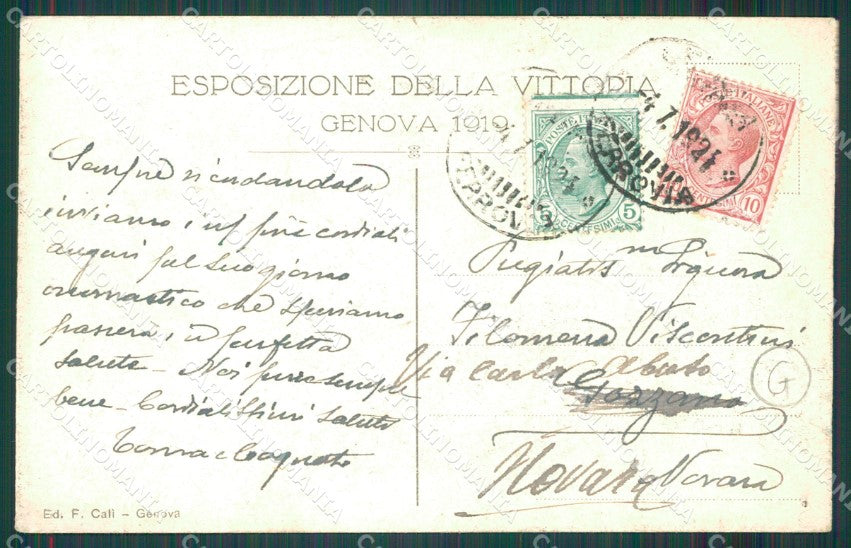 ESPOSIZIONE DELLA VITTORIA
GENOVA 1919
Sempre ricordandola
inviamo, i più cordiali
auguri pel suo giorno
onomastico che speriamo
passera, in perfetta
salute - Noi pure sempre
bene - Cordialissimi saluti
e Cognato
Ed. F. Calì - Genova
POSTE ITALIANE
5
CENTESIMI
POSTE ITALIANE
10
4.7.1921
FERROVIA
4.7.1921
FERROVIA
Pregiatis ma Signora
Filomena Viscontini
Via Carlo Alberto
Gozzano
Novara Novara
G
CARTOLINOMANIA